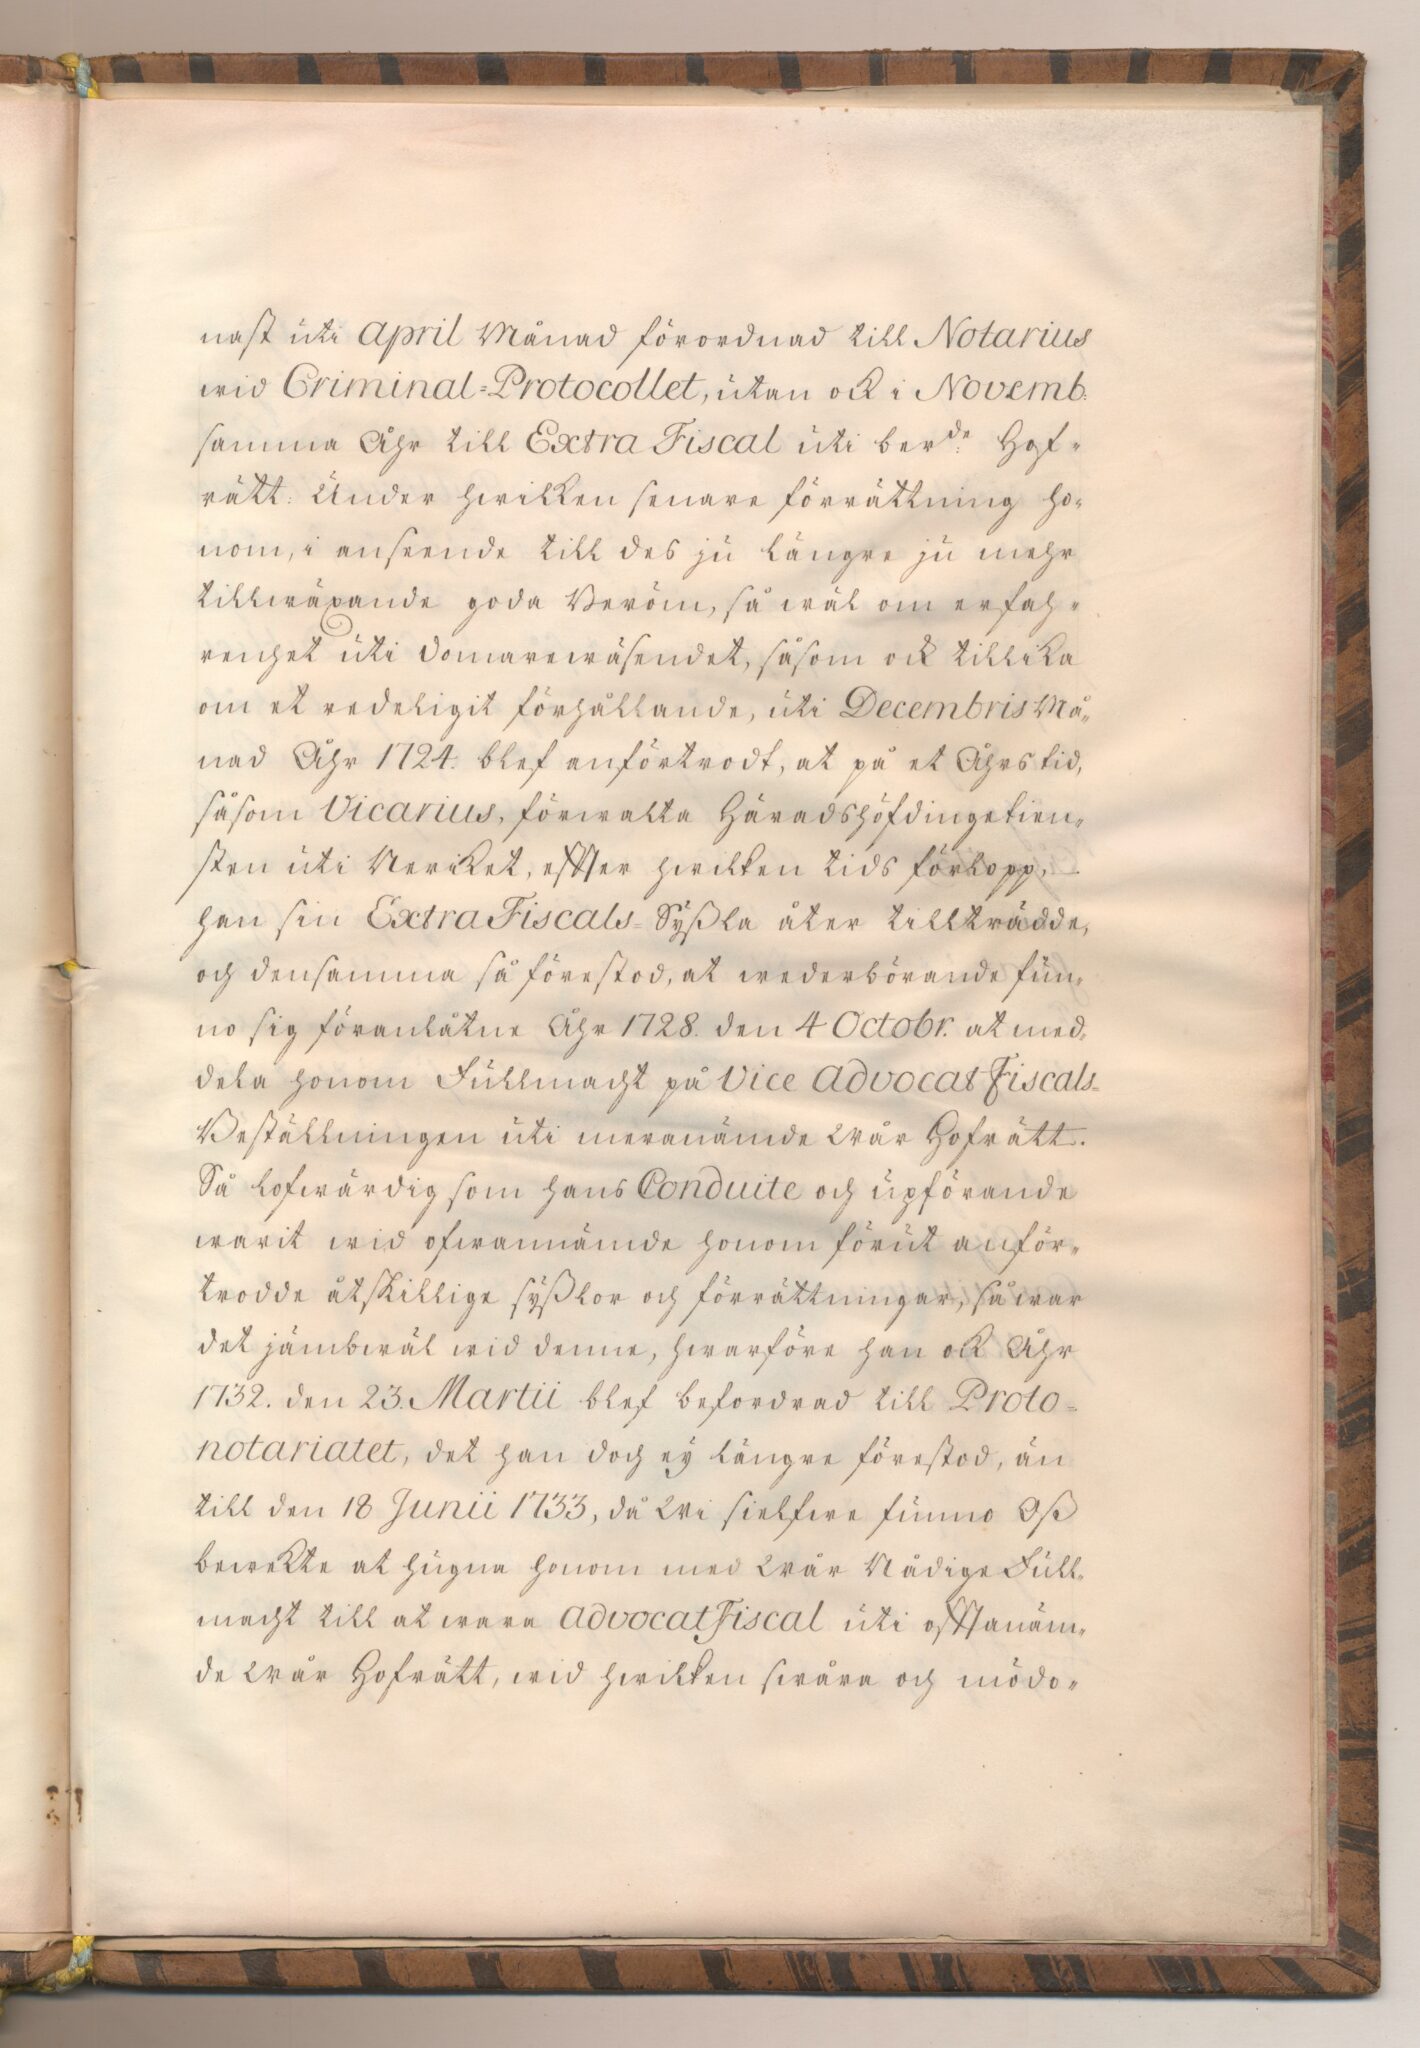 nast uti April Månad förordnad till Notarius
wid Criminal=Protocollet, utan ock i Novemb.
samma Åhr till Extra Fiscal uti ber.de Hof=
rätt: Under hwilken senare förrättning ho=
nom, i anseende till des ju längre ju mehr
tillwäxande goda Beröm, så wäl om erfah=
renhet uti domarewäsendet, såsom ock tillika
om et redeligit förhållande, uti Decembris Må=
nad Åhr 1724. blef anförtrodt, at på et Åhrs tid,
såsom Vicarius, förwalta Häradshöfdingetien=
sten uti Nericket, effter hwilken tids förlopp,
han sin Extra Fiscals=Syßla åter tillträdde,
och densamma så förestod, at wederbörande fun=
no sig föranlåtne Åhr 1728. den 4 Octobr. at med=
dela honom Fullmacht på Vice Advocat Fiscals=
Beställningen uti meranämde Wår Hofrätt.
Så lofwärdig som hans Conduite och upförande
warit wid ofwannämde honom förut anför=
trodde åtskillige syßlor och förrättningar, så war
det jämbwäl wid denne, hwarföre han ock Åhr
1732. den 23. Martii blef befordrad till Proto=
notariatet, det han doch ey längre förestod, än
till den 18 Junii 1733, då Wi sielfwe funno Oß
bewekte at hugna honom med Wår Nådige Full=
macht till at wara Advocat Fiscal uti offtanäm=
de Wår Hofrätt, wid hwilken swåra och mödo=